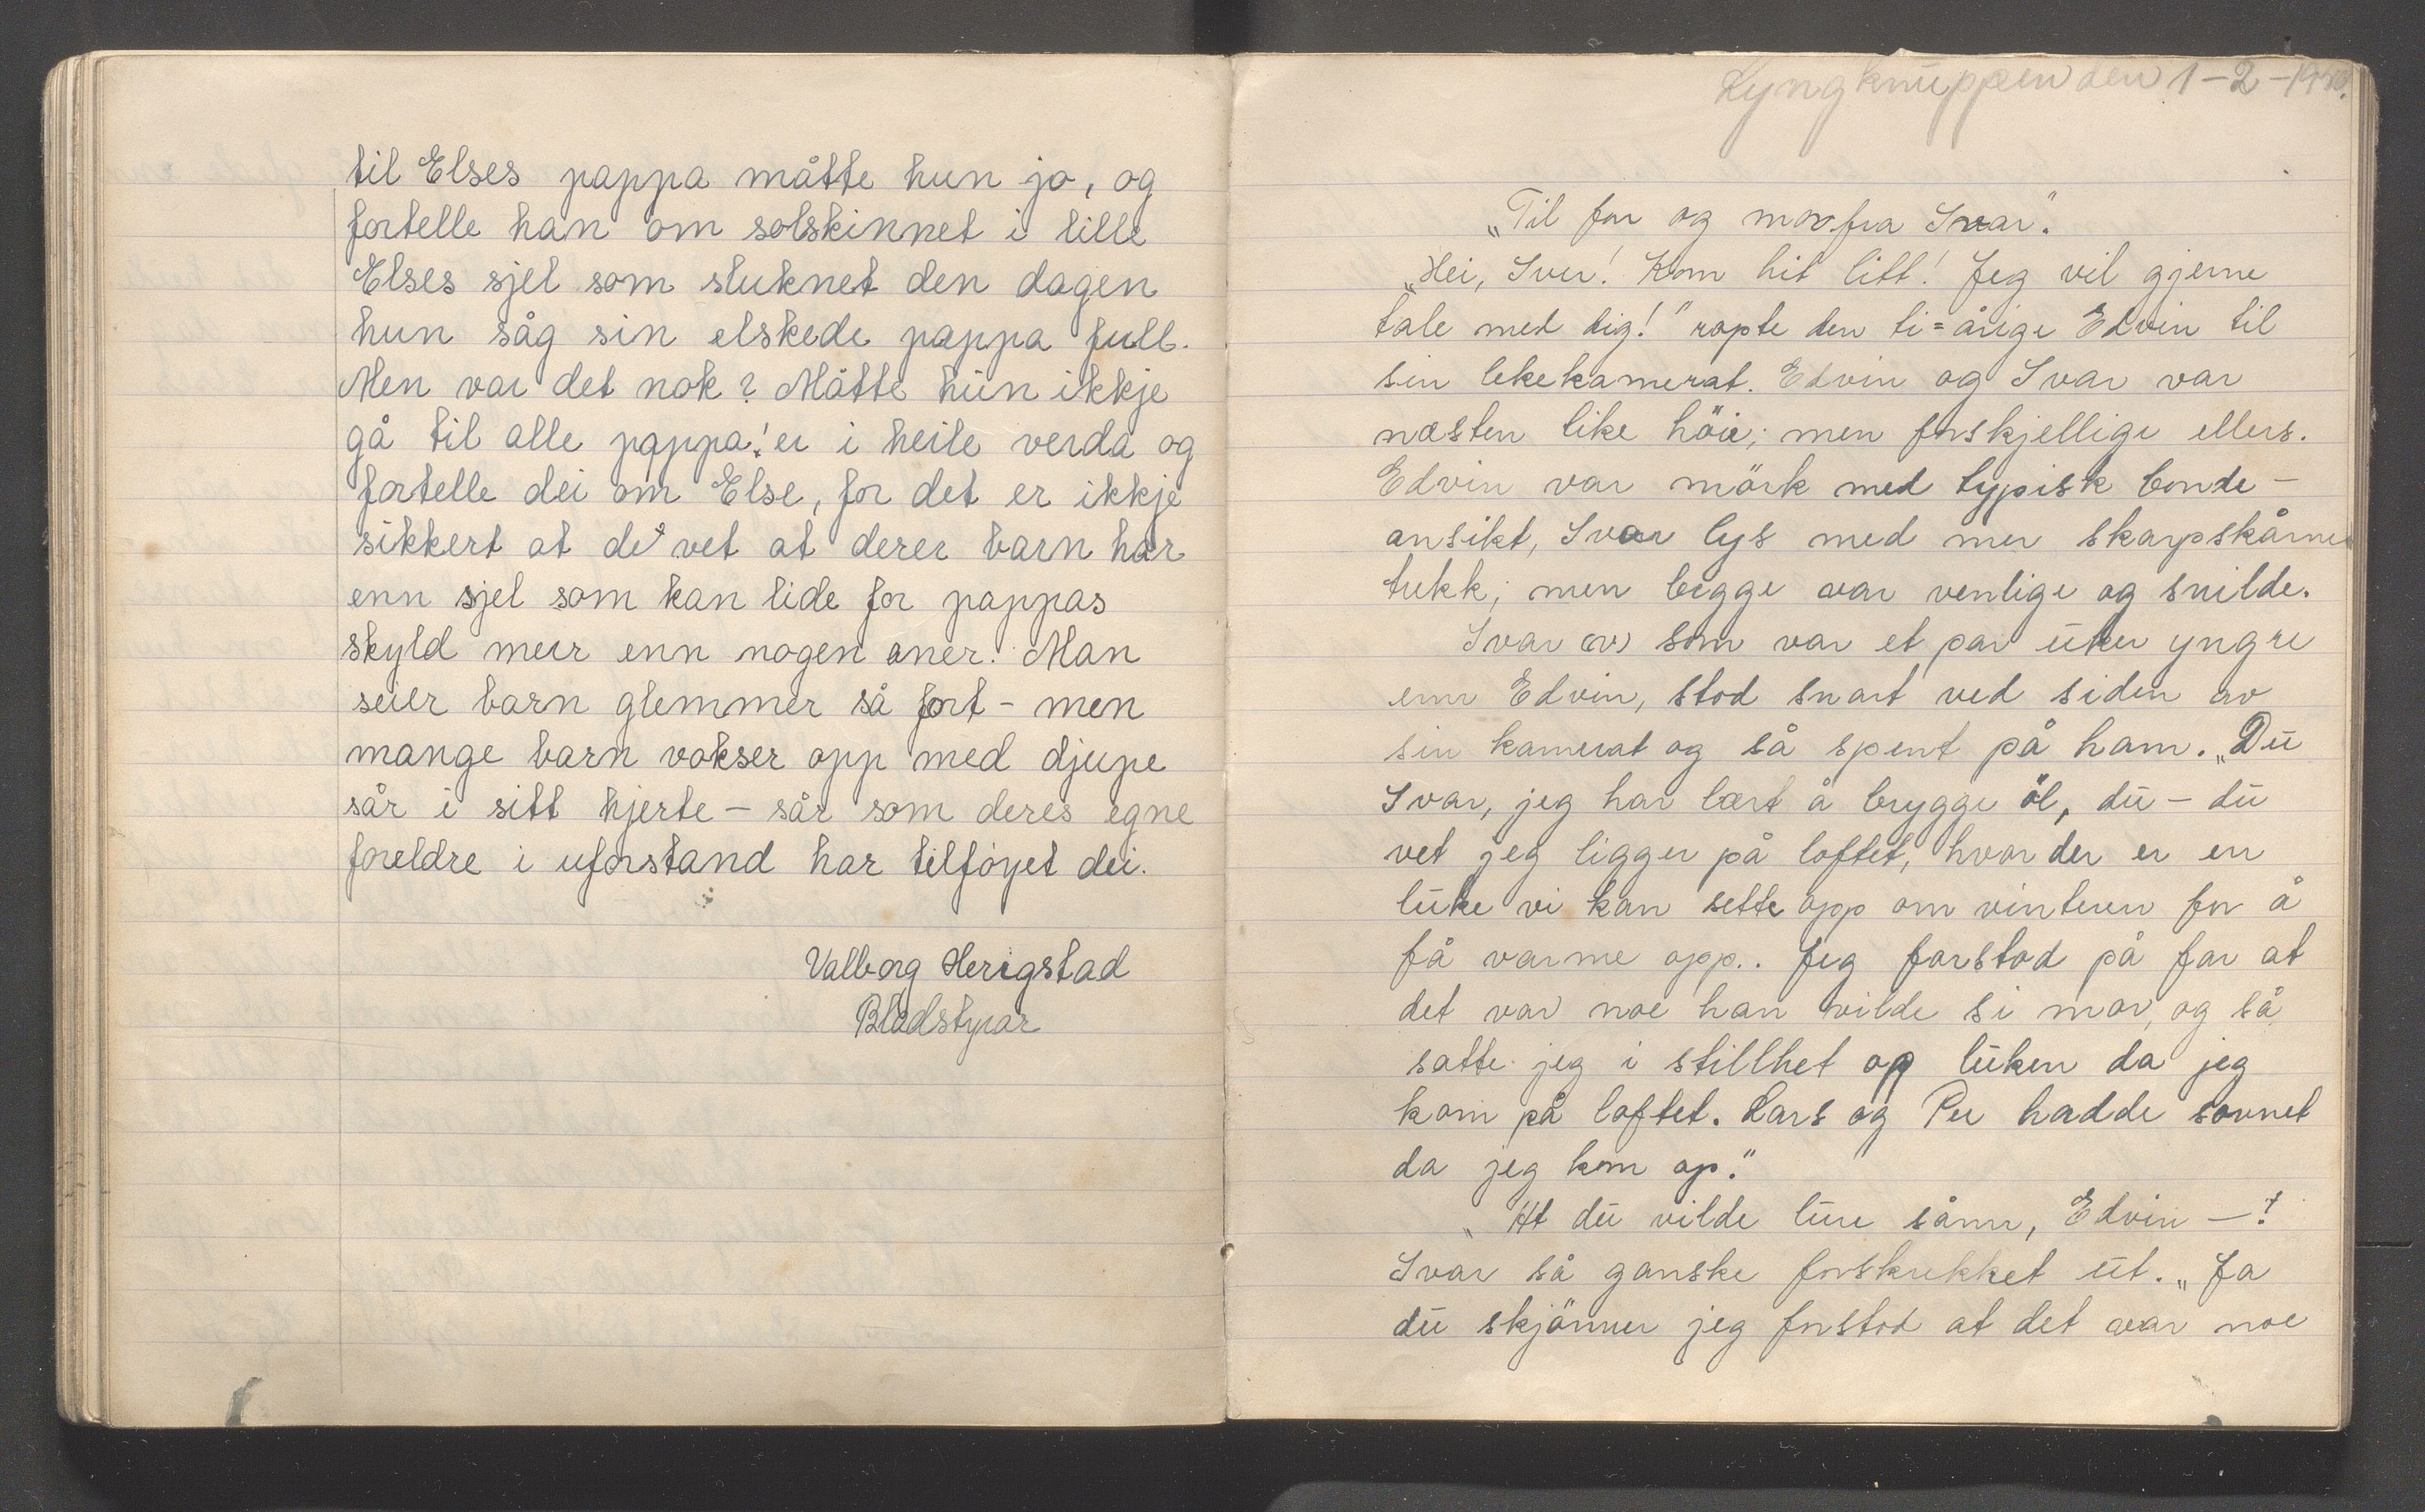 til Elses pappa måtte hun jo, og
fortelle han om solskinnet i lille
Elses sjel som sluknet den dagen
hun såg sin elskede pappa full.
Men var det nok? Måtte hun ikkje
gå til alle pappa'er i heile verda og
fortelle dei om Else, for det er ikkje
sikkert at de vet at derer barn har
enn sjel som kan lide for pappas
skyld meir enn nogen aner. Man
seier barn glemmer så fort - men
mange barn vokser opp med djupe
sår i sitt hjerte - sår som deres egne
foreldre i uforstand har tilføyet dei.
Valborg Herigstad
Bladstyrar
Lyngknuppen den 1-2-
„Til far og mor fra Ivar".
„Hei, Iver! Kom hit litt! Jeg vil gjerne
tale med dig!" ropte den ti=årige Edvin til
sin lekekamerat. Edvin og Ivar var
næsten like höie; men forskjellige ellers.
Edvin var mörk med typisk bonde-
ansikt, Ivar lys med mer skarpskårne
trekk; men begge var venlige og snilde.
Ivar (v) som var et par uker yngre
enn Edvin, stod snart ved siden av
sin kamerat og så spent på ham. „Du
Ivar, jeg har lært å brygge öl, du - du
vet jeg ligger på loftet, hvor der er en
luke vi kan sette opp om vinteren for å
få varme opp.. Jeg forstod på far at
det var noe han vilde si mor, og så
satte jeg i stillhet op luken da jeg
kom på loftet. Lars og Per hadde sovnet
da jeg kom op."
„At du vilde lure sånn, Edvin -?
Ivar så ganske forskrekket ut. „Ja
du skjönner jeg forstod at det var noe